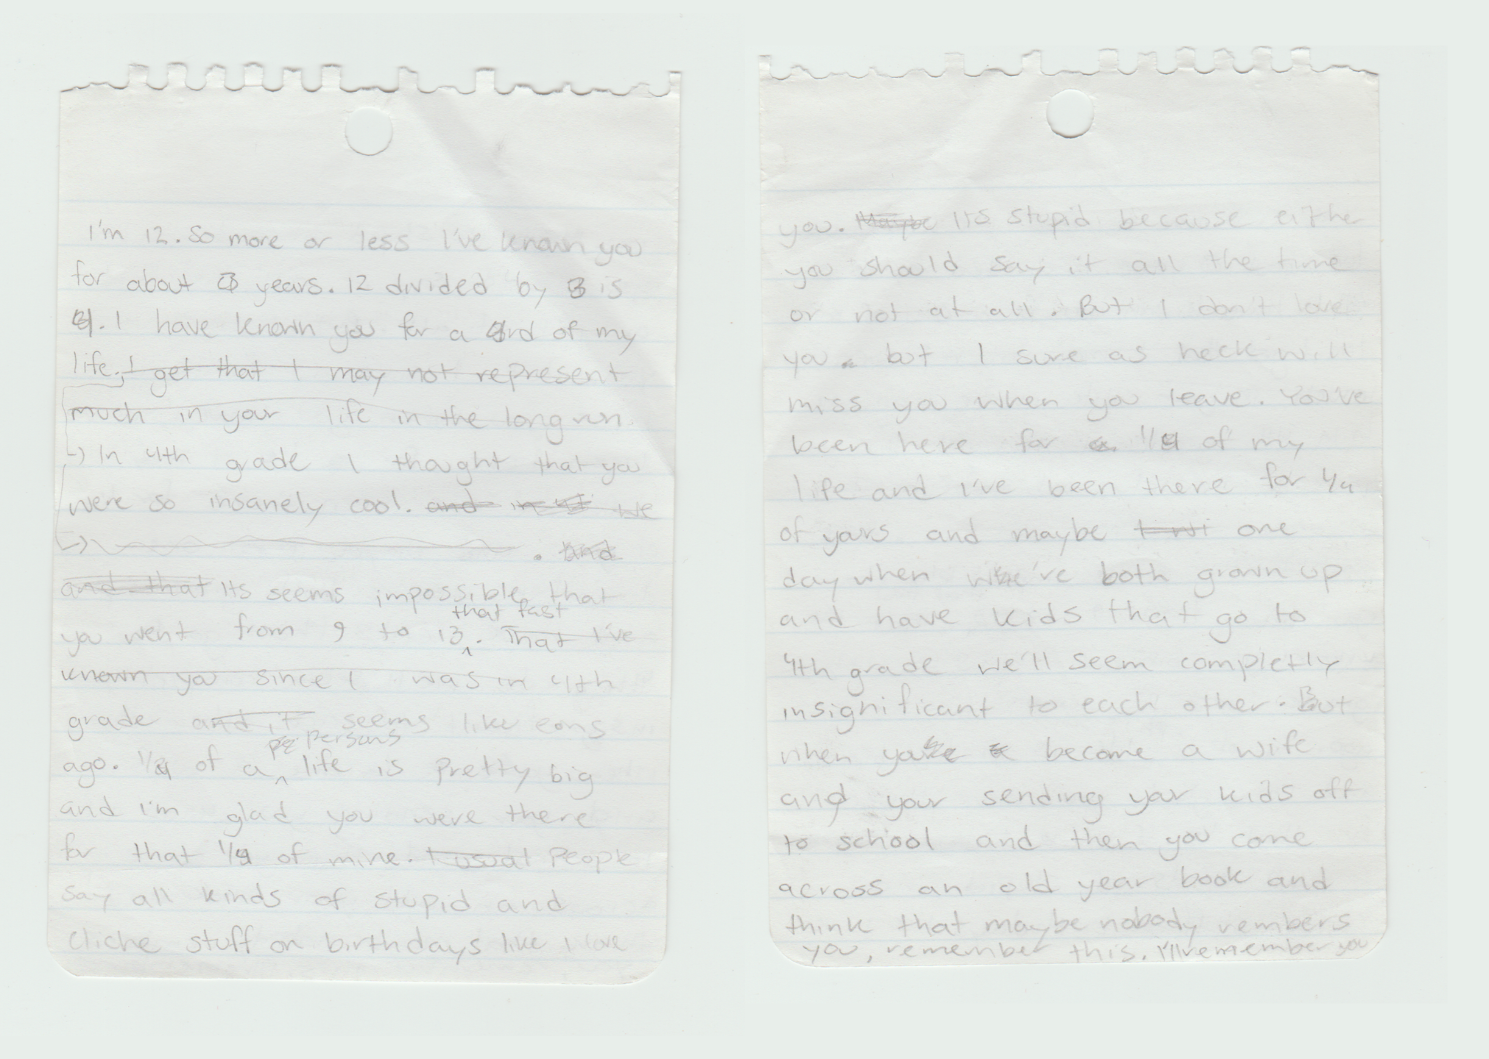 I'm 12. So more or less I've known you
for about 3 years. 12 divided by 3 is
4. I have known you for a of my
life. I get that I may not represent
much in your life in the long run.
In 4th grade I thought that you
were so insanely cool. and we
. and
and that Its seems impossible that
that fast
you went from 9 to 13. That I've
known you since I was in 4th
grade and it seems like eons
persons
ago. 1/4 of a life is pretty big
and I'm glad you were there
for that 1/4 of mine. I usual People
say all kinds of stupid and
cliche stuff on birthdays like I love
you. Maybe Its stupid because either
you should say it all the time
or not at all. But I don't love
you. but I sure as heck will
miss you when you leave. You've
been here for 1/4 of my
life and I've been there for 1/4
of yours and maybe one
day when we've both grown up
and have kids that go to
4th grade we'll seem completly
insignificant to each other. But
when you become a wife
and your sending your kids off
to school and then you come
across an old year book and
think that maybe nobody rembers
you, remember this. I'll remember you